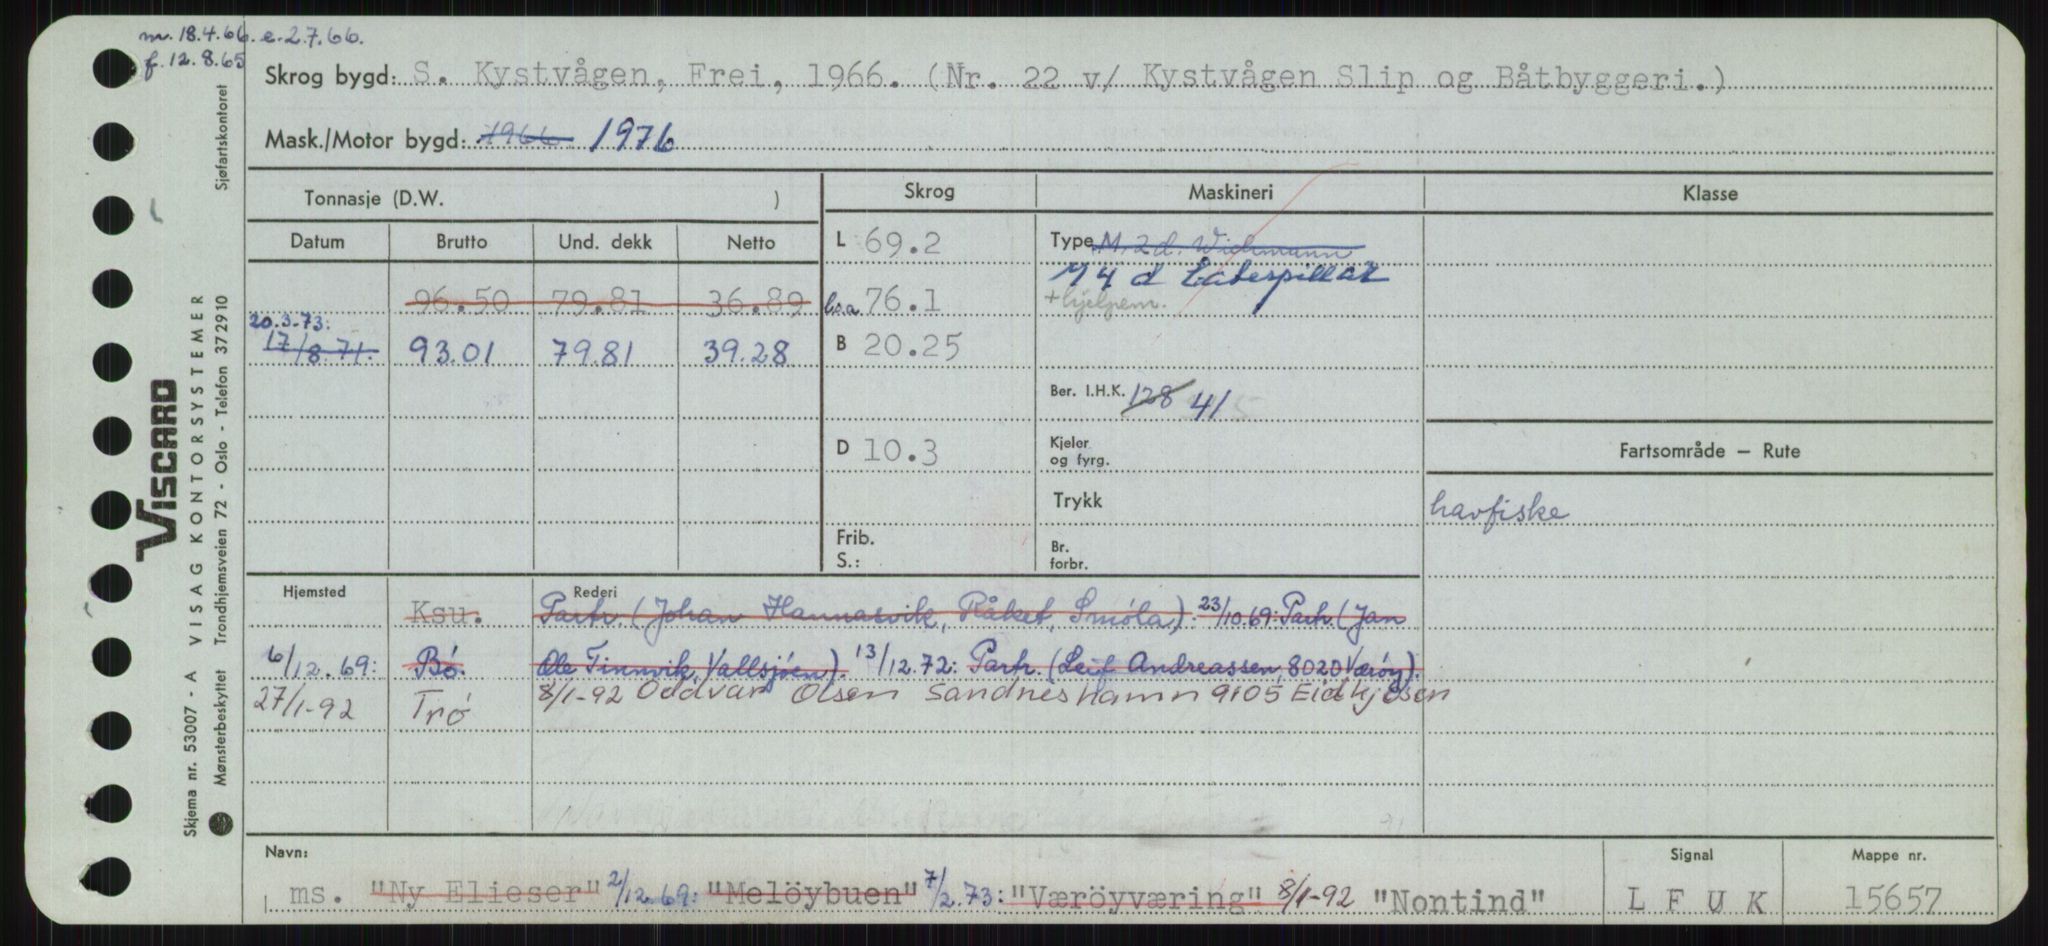 m. 18.4.66. e. 2.7.66.
f. 12.8.65
Skrog bygd: S. Kystvågen, Frei, 1966. (Nr. 22 v/ Kystvågen Slip og Båtbyggeri.)
Mask./Motor bygd: 1966 1976
Tonnasje (D.W. ) Skrog Maskineri Klasse
Datum Brutto Und. dekk Netto L 69.2 Type M. 2 d. Wichmann
M 4 d Caterpillar
96.50 79.81 36.89 l.o.a 76.1 + hjelpem.
20.3.73:
17/8.71. 93.01 79.81 39.28 B 20.25
Ber. I.H.K. 128 41
D 10.3 Kjeler og fyrg. Fartsområde – Rute
Trykk havfiske
Frib.
S.: Br. forbr.
Hjemsted Rederi
Ksu. Partr. (Johan Hannasvik, Råket, Smöla). 23/10.69: Partr. (Jan
6/12.69: Bö. Ole Tinnvik, Vallsjöen). 13/12.72: Partr. (Leif Andreassen, 8020 Væröy).
27/1-92 Trö 8/1-92 Oddvar Olsen Sandneshamn 9105 Eidkjosen
Navn: Signal Mappe nr.
ms. "Ny Elieser" 2/12.69: "Melöybuen" 7/2.73: "Væröyværing" 8/1-92 "Nontind" L F U K 15657
Skjema nr. 53007 - A VISAG KONTORSYSTEMER
VISCARD
Mønsterbeskyttet Trondhjemsveien 72 - Oslo - Telefon 37 29 10 Sjøfartskontoret